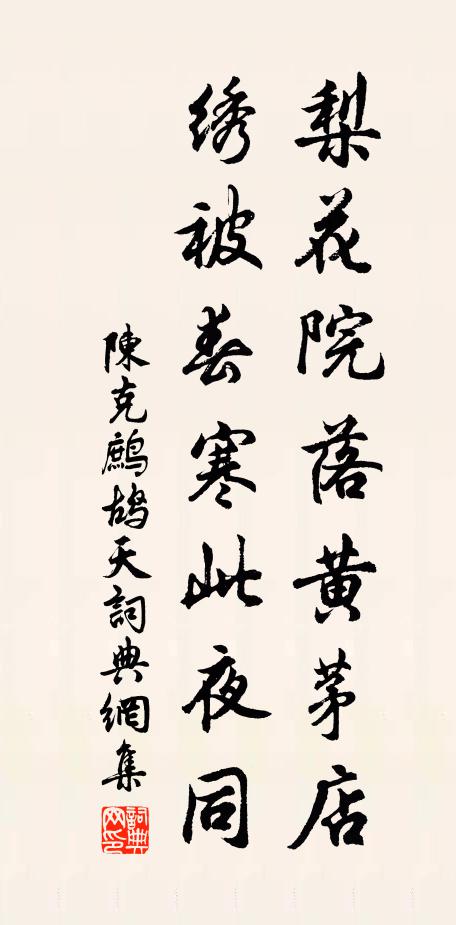 梨花院落黄茅店
绣被春寒此夜同
陳克鷓鴣天詞典網集
詞典网印